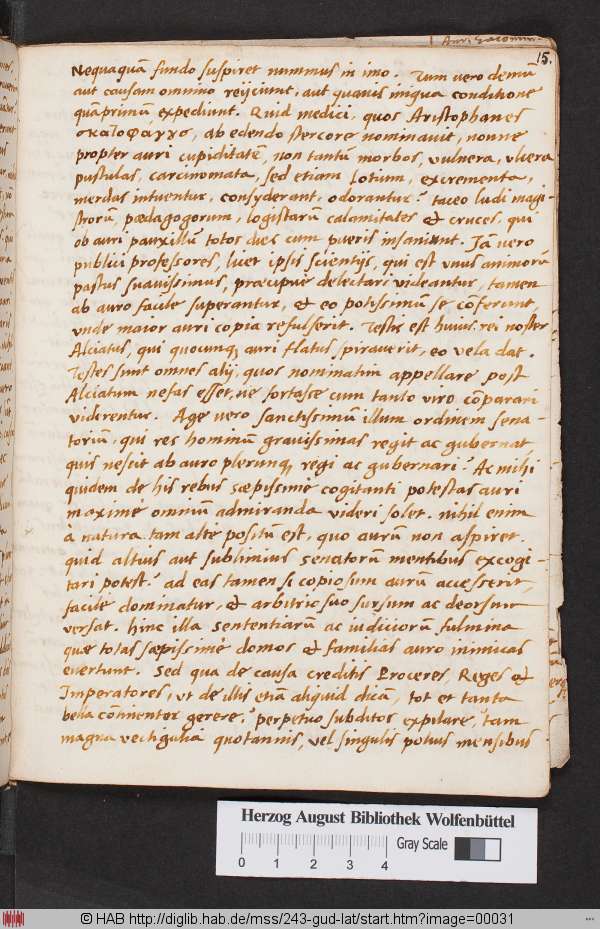 Auri Encomium
15.
Nequaquã fundo suspiret nummus in imo. Tum vero demũ
aut causam omnino reijciunt, aut quauis iniqua conditione
quãprimũm expediunt. Quid medici, quos Aristophanes
σκατοφάγȣσ, ab edendo stercore nominauit, nonne
propter auri cupiditatẽ, non tantũ morbos, vulnera, vlcera
pustulas, carcinomata, sed etiam lotium, excrementa,
merdas intuentur, consyderant, odorantur? taceo ludi magi-
strorũm, pædagogorum, logistarũm calamitates & cruces, qui
ob auri pauxillũm totos dies cum pueris insaniunt. Jã vero
publici professores, licet ipsis scientijs, qui est vnus animorũ
pastus suauissimus, præcipuè delectari videantur, tamen
ab auro facile superantur, & eo potissimũm se cõferunt,
vnde maior auri copia refulserit. Testis est huius rei noster
Alciatus, qui quocunq, auri flatus spirauerit, eo vela dat.
Testes sunt omnes alij, quos nominatim appellare post
Alciatum nefas esset, ne fortasse cum tanto viro cõparari
viderentur. Age vero sanctissimũm illum ordinem sena-
toriũm, qui res hominũm grauissimas regit ac gubernat
quis nescit ab auro plerunq, regi ac gubernari? Ac mihi
quidem de his rebus sæpissimè cogitanti potestas auri
maximè omniũm admiranda videri solet. nihil enim
a natura tam altè positũm est, quo aurũm non aspiret.
quid altius aut sublimius senatorũm mentibus excogi-
tari potest? ad eas tamen si copiosum aurũm accesserit,
facilè dominatur, & arbitrio suo sursum ac deorsum
versat. hinc illa sententiarũm ac iudiciorũm fulmina
quæ totas sæpissimè domos & familias auro inimicas
euertunt. Sed qua de causa creditis Proceres, Reges &
Imperatores, vt de illis etiã aliquid dicã, tot et tanta
bella cõmnenter gerere? perpetuo subditos expilare, tam
magna vectigalia quotannis, vel singulis potius mensibus
Herzog August Bibliothek Wolfenbüttel
0 1 2 3 4
Gray Scale
© HAB http://diglib.hab.de/mss/243-gud-lat/start.htm?image=00031